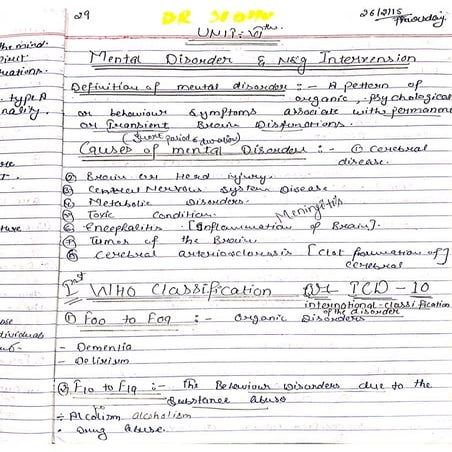 29
DR
26/2/15
Thursday.
UNIT:- VI th
Mental Disorder & Nsg Intervension
Definition of mental disorder :- A pattern of
organic, psychological
or behaviour symptoms associate with permanent
or Transient Brain Disfunctions.
(Short period & duration)
Causes of mental Disorder :- ① Cerebral
disease.
② Brain or Head injury.
③ Central Nervous System Disease
④ Metabolic Disorders.
⑤ Toxic Condition.
Meningitis
⑥ Encephalitis [Inflammation of Brain].
⑦ Tumor of the Brain.
⑧ Cerebral arteriosclerosis [Clot formation of]
Cerebral
Ist WHO Classification OR ICD - 10
international classification
of the disorder
① F00 to F09 :- Organic Disorders
- Dementia
- Delirium
② F10 to F19 :- The Behaviour Disorders due to the
Substance abuse
÷ Alcolism alcoholism
• Drug Abuse.
the mind.
uations.
type A
nality.
ose
dividuals